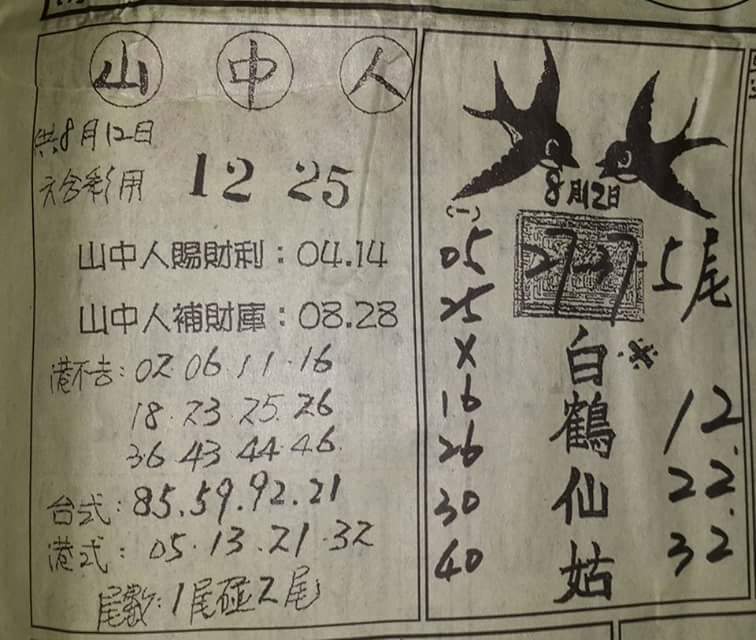 山中人
共8月12日
六合彩用 12 25
山中人賜財利：04.14
山中人補財庫：08.28
港不吉：02.06.11.16
18.23.25.26
36.43.44.46.
台式：85.59.92.21
港式：05.13.21.32
尾數：1尾碰2尾
8月12日
(一)
05
25
X
16
26
30
40
27-27-5尾
白鶴仙姑
12
22
32